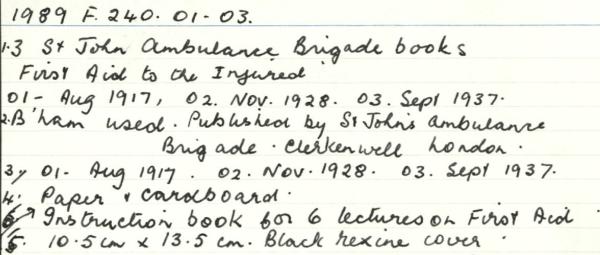 1989 F. 240. 01-03.
1.3 St John Ambulance Brigade books
First Aid to the Injured
01- Aug 1917, 02. Nov. 1928. 03. Sept 1937.
2. B'ham used. Published by St John's Ambulance
Brigade. Clerkenwell London.
3, 01- Aug 1917. 02. Nov. 1928. 03. Sept 1937.
4. Paper & Cardboard.
Instruction book for 6 lectures on First Aid
5. 10.5 cm x 13.5 cm. Black rexine cover.